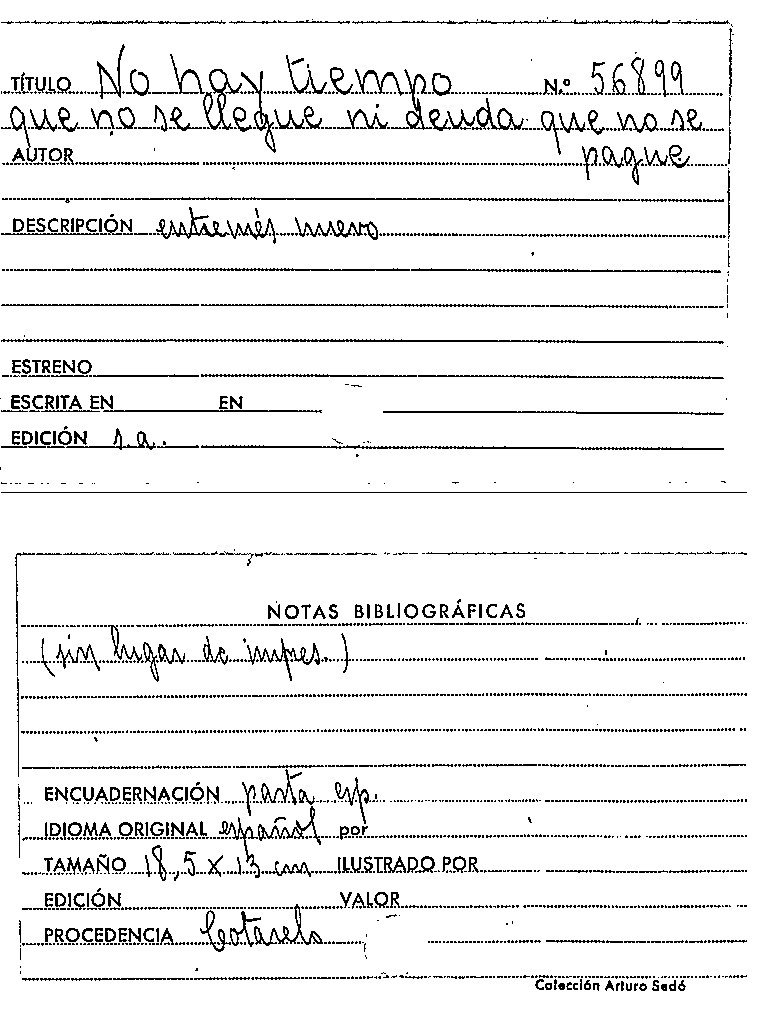 TÍTULO No hay tiempo N.º 56899
que no se llegue ni deuda que no se
AUTOR pague
DESCRIPCIÓN entremés nuevo
ESTRENO
ESCRITA EN EN
EDICIÓN s.a.
NOTAS BIBLIOGRÁFICAS
(sin lugar de impres.)
ENCUADERNACIÓN pasta esp.
IDIOMA ORIGINAL español por
TAMAÑO 18,5 x 13 cm ILUSTRADO POR
EDICIÓN VALOR
PROCEDENCIA Cotarelo
Colección Arturo Sedó